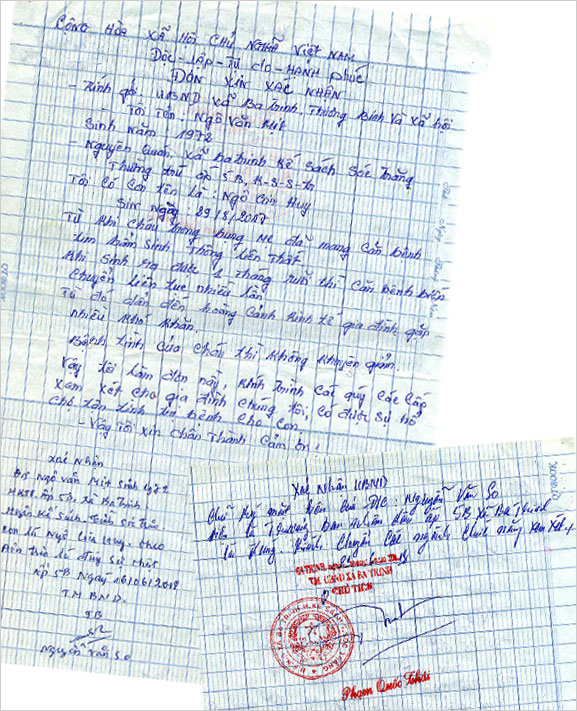 CỘNG HÒA XÃ HỘI CHỦ NGHĨA VIỆT NAM
Độc - Lập - Tự do - HẠNH phúc
ĐƠN XIN XÁC NHẬN
- Kính gởi. UBND xã Ba trinh. Thương Binh và xã hội
- Tôi Tên: Ngô Văn Mịt
Sinh Năm 1972
- Nguyên Quán. xã Ba trinh Kế Sách Sóc Trăng
Thường trú ấp 5B, K-S-S-tr
Tôi có con tên là: Ngô Huy
Sin Ngày 29/8/2017
Từ khi cháu trong bụng mẹ đã mang căn bệnh
tim bẩm sinh Thông liên Thất
khi sinh ra được 1 tháng rưỡi thì căn bệnh biến
chuyển liên tục nhiều lần
Từ đó dẫn đến hoàng cảnh kinh tế gia đình gặp
nhiều khó khăn.
Bệnh tình của cháu thì không thuyên giảm.
Vậy tôi làm đơn này, kính trình các quý các cấp
xem xét cho gia đình chúng tôi, có được sự hổ
tim bệnh cho con
- Vậy Tôi xin chân Thành Cảm ơn!
Xác Nhận
Ngô văn Mịt sinh
ấp 5b, xã Ba trinh,
huyện kế sách. tỉnh sóc trăng
con là Ngô Huy theo
đúng sự thật
Ấp 5B Ngày 16/06/2018
TM BND.
5B
Nguyễn Văn So
Xác Nhận UBND
Chữ ký mặt bên của ông: Nguyễn Văn So
là Trưởng ban nhân dân ấp 5B xã Ba Trinh
là đúng. Kính chuyển các ngành chức năng xem xét./.
BA TRINH,
TM UBND XÃ BA TRINH
CHỦ TỊCH
Phạm Quốc